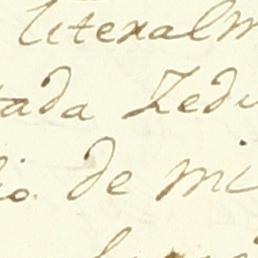 literalm
tada Zedu
io. de mi